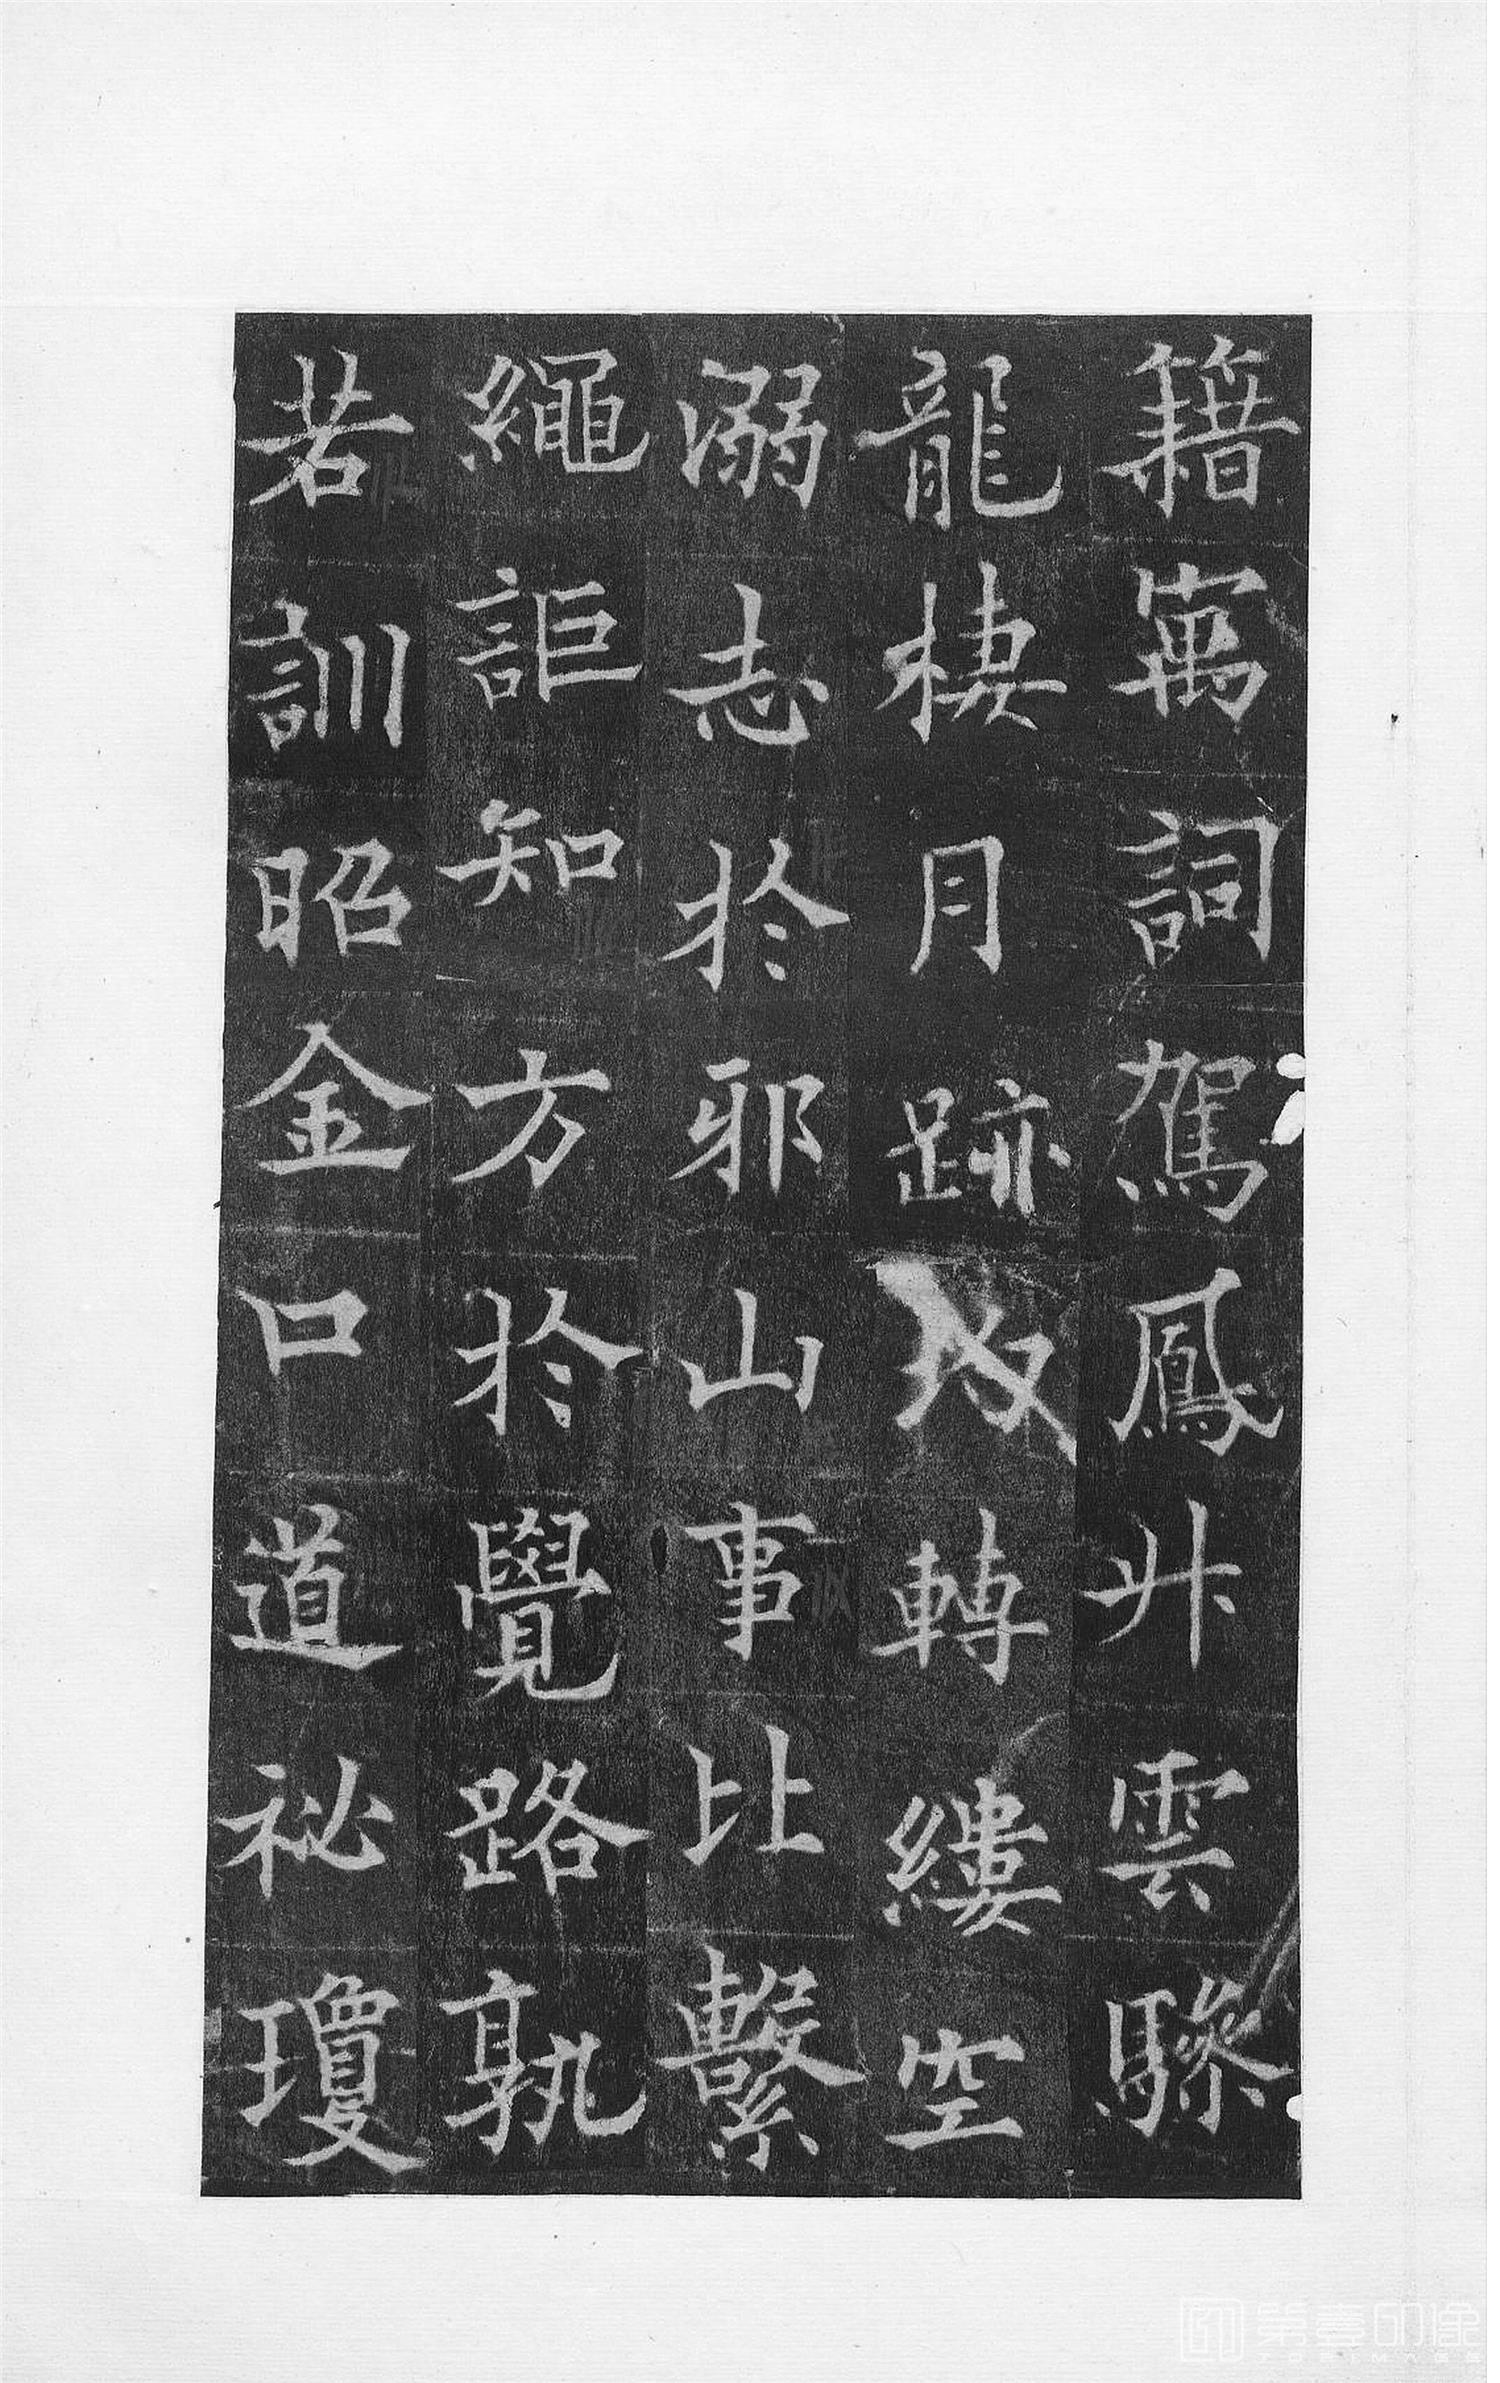 籍寓詞駕鳳升雲驂
龍棲月跡轉縷空
溺志於邪山事比繫
繩詎知方於覺路孰
若訓昭金口道祕瓊
第壹印像
TOPIMAGE